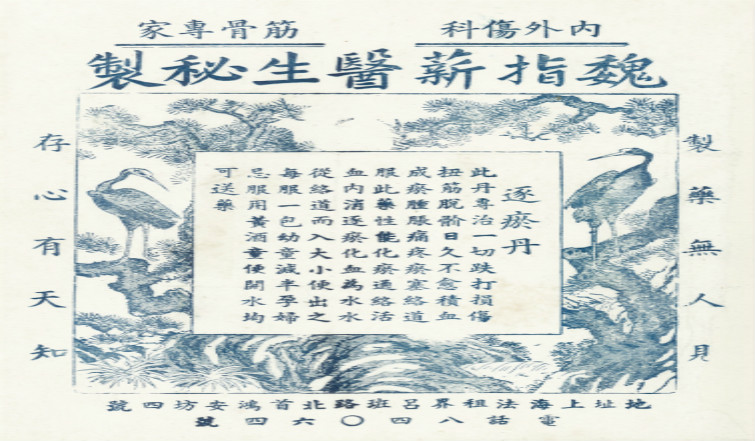 內外傷科
筋骨專家
魏指薪醫生秘製
製藥無人見
存心有天知
逐瘀丹
此丹專治一切跌打損傷
扭筋脫骱日久不愈積血
成瘀腫脹痛疼瘀塞絡道
服此藥性能化瘀通絡活
血內消逐瘀化血為水水
從絡道而入大小便出之
每服一包幼童減半孕婦
忌服用黃酒童便開水均
可送藥
地址上海法租界呂班路北首鴻安坊四號
電話八四〇六四號